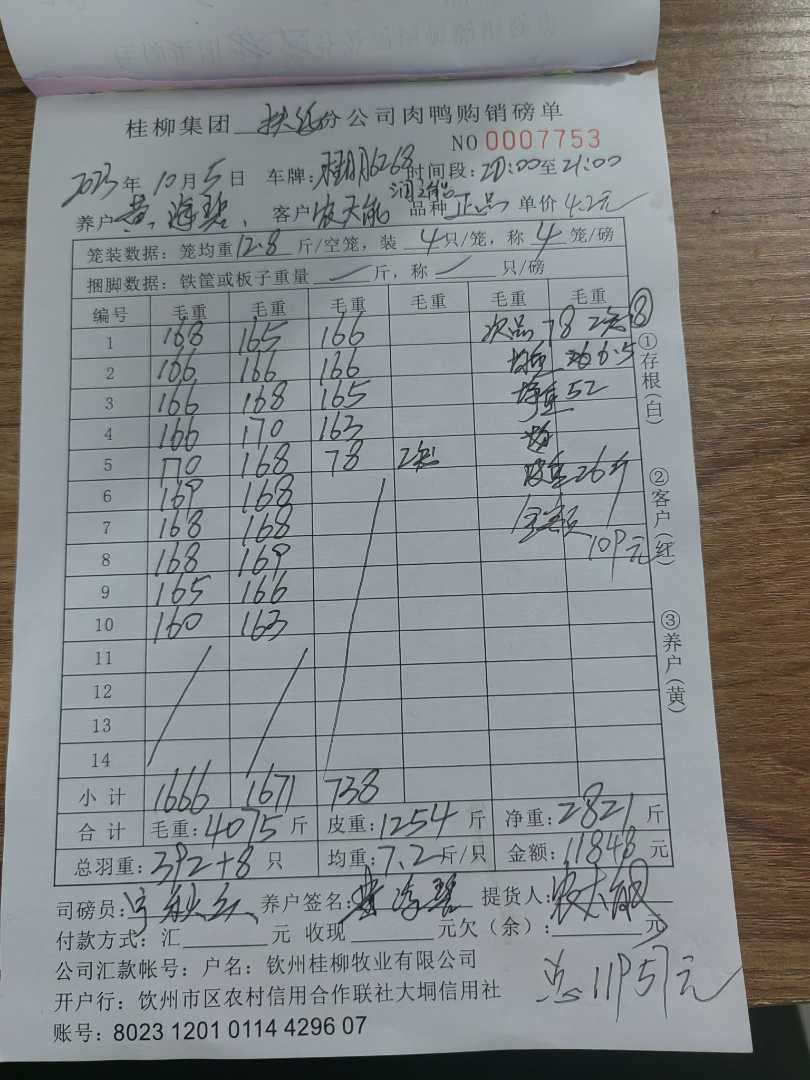 桂柳集团 扶绥 分公司肉鸭购销磅单
NO 0007753
2023年 10月5日 车牌: 6268 时间段: 20:00至21:00
养户 黄海碧 客户 农天能 品种 正品 单价 4.2元
笼装数据: 笼均重 12.8 斤/空笼, 装 4 只/笼, 称 4 笼/磅
捆脚数据: 铁筐或板子重量 — 斤, 称 — 只/磅
编号 毛重 毛重 毛重 毛重 毛重 毛重
1 168 165 166 次品 78 2笼8
2 166 166 166 均重 6.5
3 166 168 165 净重 52
4 166 170 163
5 170 168 78 2笼 皮重 26斤
6 169 168 金额
7 168 168 109元
8 168 169
9 165 166
10 160 163
11
12
13
14
小计 1666 1671 738
合计 毛重: 4075 斤 皮重: 1254 斤 净重: 2821 斤
总羽重: 392+8 只 均重: 7.2 斤/只 金额: 11848 元
司磅员: 养户签名: 黄海碧 提货人: 农天能
付款方式: 汇 元 收现 元欠(余): 元
公司汇款帐号: 户名: 钦州桂柳牧业有限公司
总11957元
开户行: 饮州市区农村信用合作联社大垌信用社
账号: 8023 1201 0114 4296 07
①存根(白)
②客户(红)
③养户(黄)